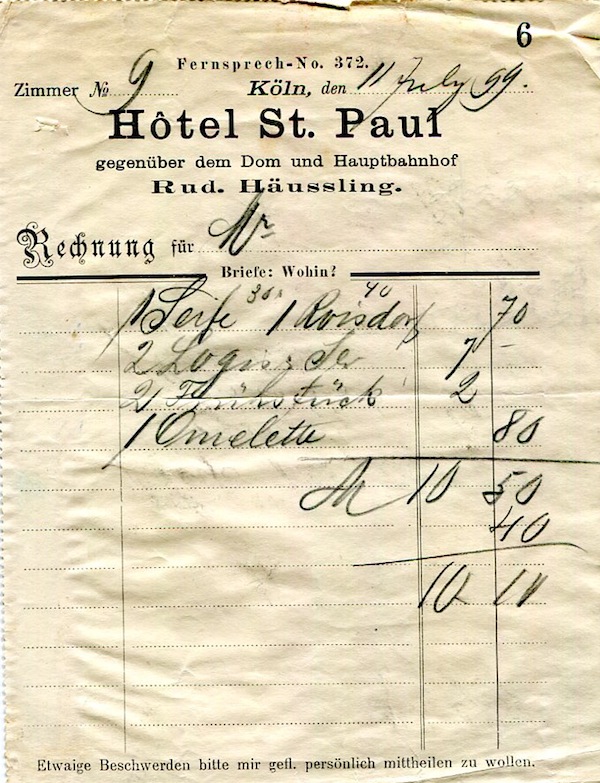 6
Fernsprech-No. 372.
Zimmer No 9 Köln, den 11 July 99.
Hôtel St. Paul
gegenüber dem Dom und Hauptbahnhof
Rud. Häussling.
Rechnung für Mr
Briefe: Wohin?
1 Seife 30 1 Roisdorf 40 70
2 Logis 7 -
2 Frühstück 2
1 Omelette 80
M 10 50
40
10
Etwaige Beschwerden bitte mir gefl. persönlich mittheilen zu wollen.